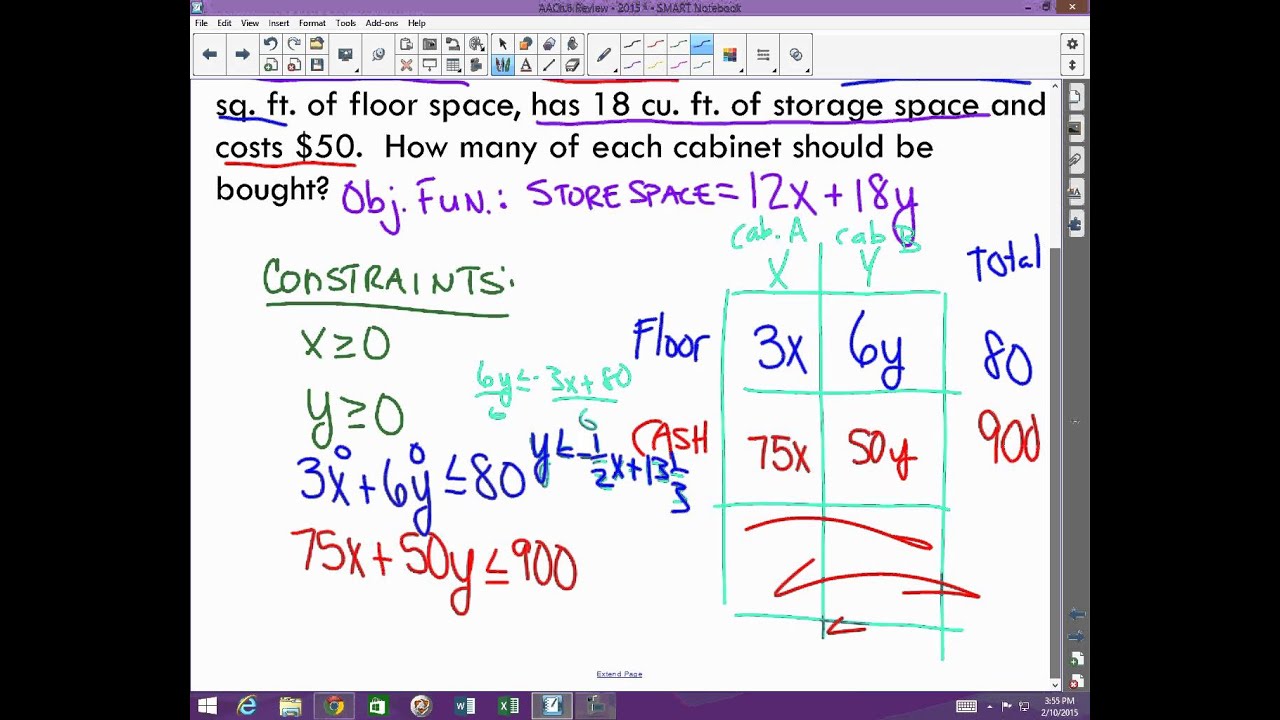 AAOn6 Review - 2015 - SMART Notebook
File Edit View Insert Format Tools Add-ons Help
sq. ft. of floor space, has 18 cu. ft. of storage space and
costs $50. How many of each cabinet should be
bought? Obj. Fun.: STORE SPACE = 12x + 18y
CONSTRAINTS:
x ≥ 0
y ≥ 0
6y ≤ -3x + 80
6 6
y ≤ -1/2 x + 13 1/3
0 0
3x + 6y ≤ 80
75x + 50y ≤ 900
cab. A cab B
X Y Total
Floor 3x 6y 80
CASH 75x 50y 900
Extend Page
3:55 PM
2/10/2015